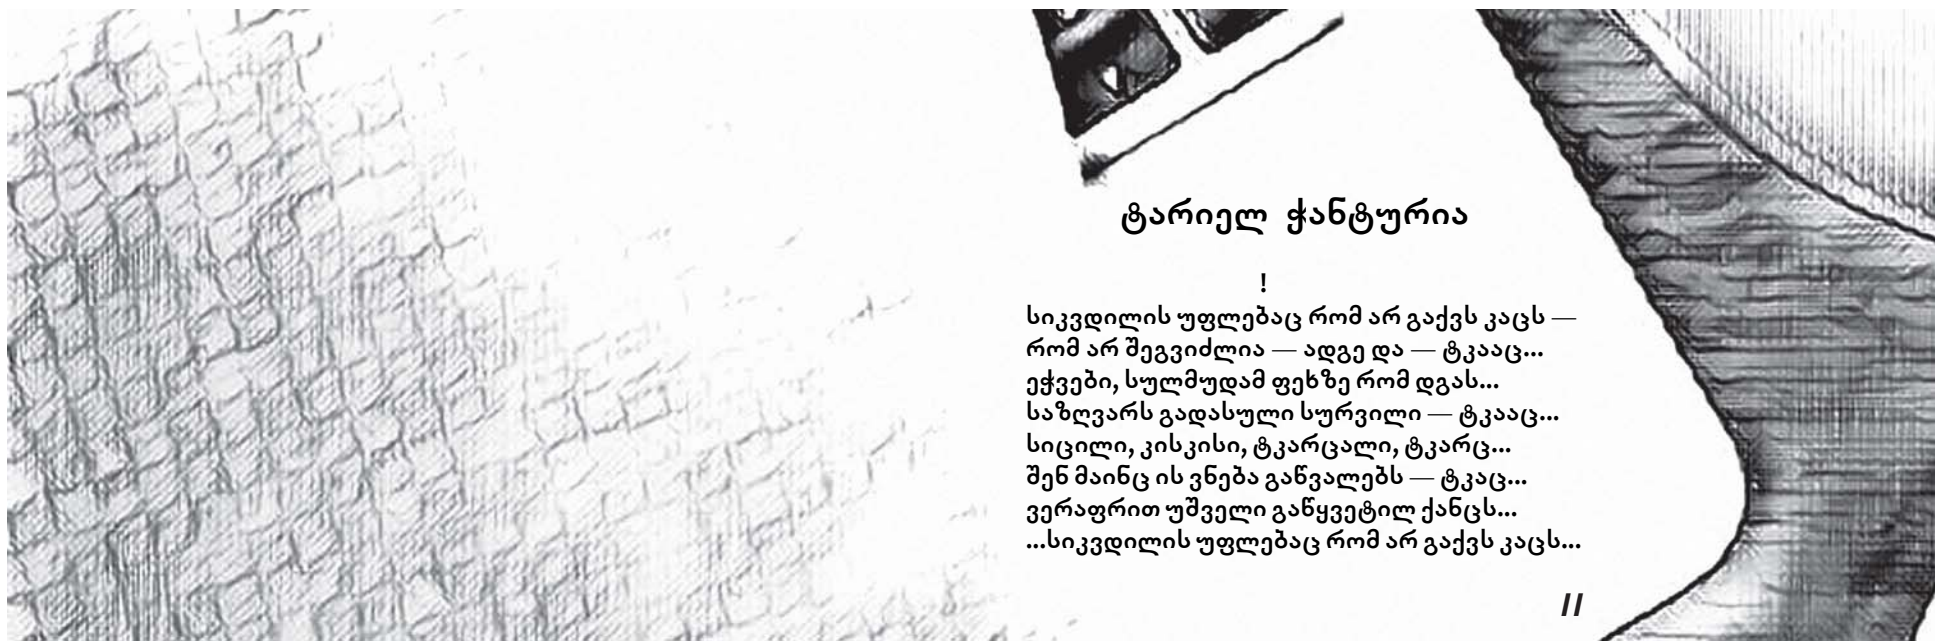 ტარიელ ჭანტურია
!
სიკვდილის უფლებაც რომ არ გაქვს კაცს —
რომ არ შეგვიძლია — ადგე და — ტკააც...
ეჭვები, სულმუდამ ფეხზე რომ დგას...
საზღვარს გადასული სურვილი — ტკააც...
სიცილი, კისკისი, ტკარცალი, ტკარც...
შენ მაინც ის ვნება გაწვალებს — ტკაც...
ვერაფრით უშველი გაწყვეტილ ქანცს...
...სიკვდილის უფლებაც რომ არ გაქვს კაცს...
11